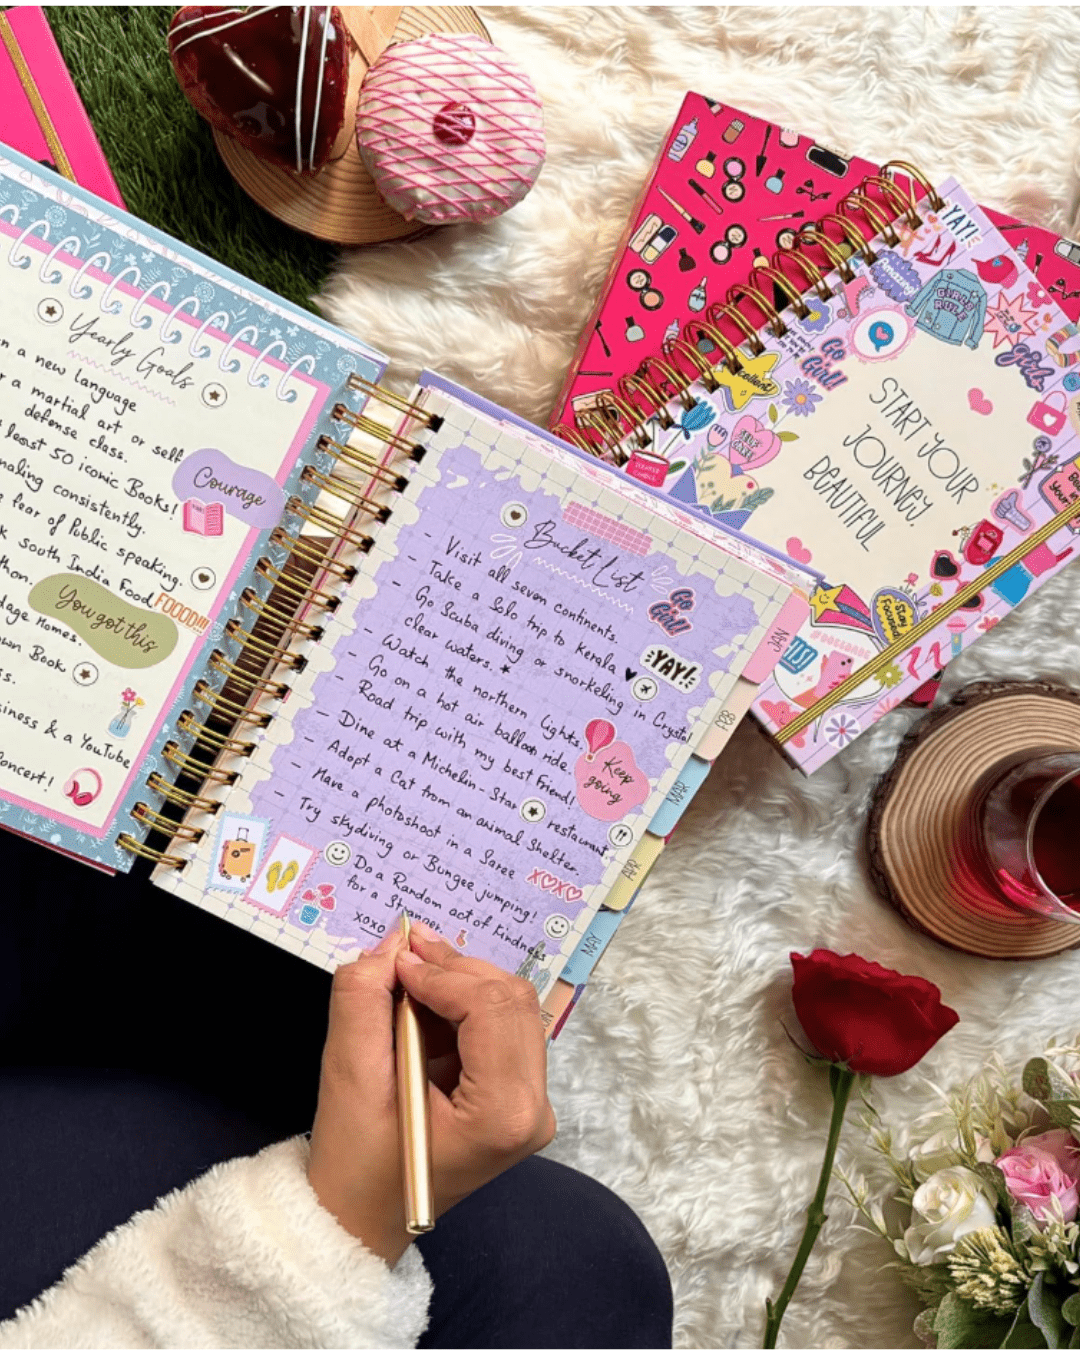 Yearly Goals
a new language
a martial art or self
defense class.
least 50 iconic Books!
consistently.
fear of Public speaking.
south India Food
FOOOD!!!
Homes.
Book
& a YouTube
Concert!
Courage
You got this
Bucket List
- Visit all seven continents.
- Take a Solo trip to kerala
- Go Scuba diving or snorkeling in Crystal
clear waters.
- Watch the northern lights.
- Go on a hot air balloon ride.
- Road trip with my best Friend!
- Dine at a Michelin-Star restaurant
- Adopt a Cat from an animal Shelter.
- Have a photoshoot in a Saree
- Try skydiving or Bungee jumping!
Do a Random act of Kindness
for a Stranger.
xoxo
Go
Girl!
YAY!
Keep
going
XOXO
JAN
FEB
MAR
APR
MAY
START YOUR
JOURNEY,
BEAUTIFUL
YAY!
Amazing
GIRLS
RULE
Go
Girl!
Excellent!
SELF
CARE
Girl
Stay
Focused
#GOALS